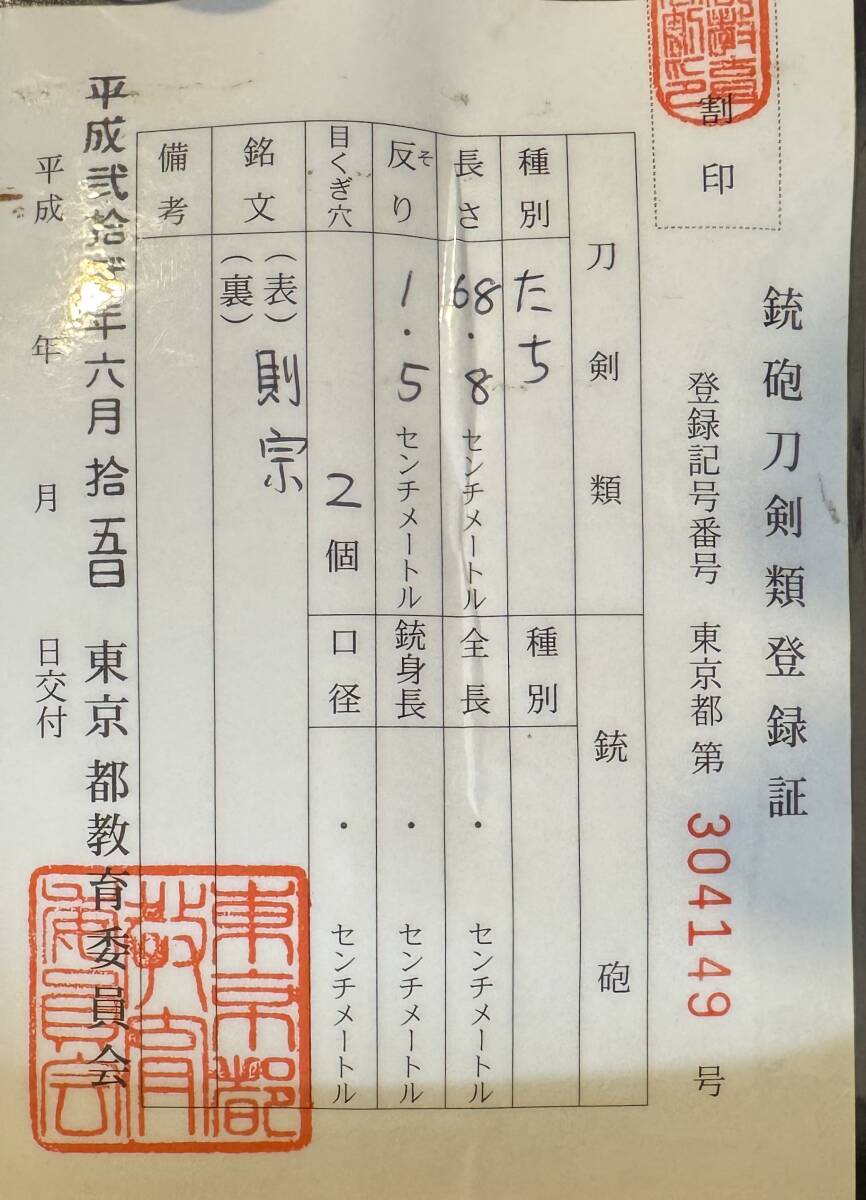 割印
銃砲刀剣類登録証
登録記号番号 東京都 第 304149 号
刀剣類
種別 たち
長さ 68.8 センチメートル
反り そ 1.5 センチメートル
目くぎ穴 2 個
銘文 (表) 則宗
(裏)
備考
銃砲
種別
全長 ・ センチメートル
銃身長 ・ センチメートル
口径 ・ センチメートル
平成弐拾 年六月拾五日 東京都教育委員会
平成 年 月 日交付
東京都
教育
委員会